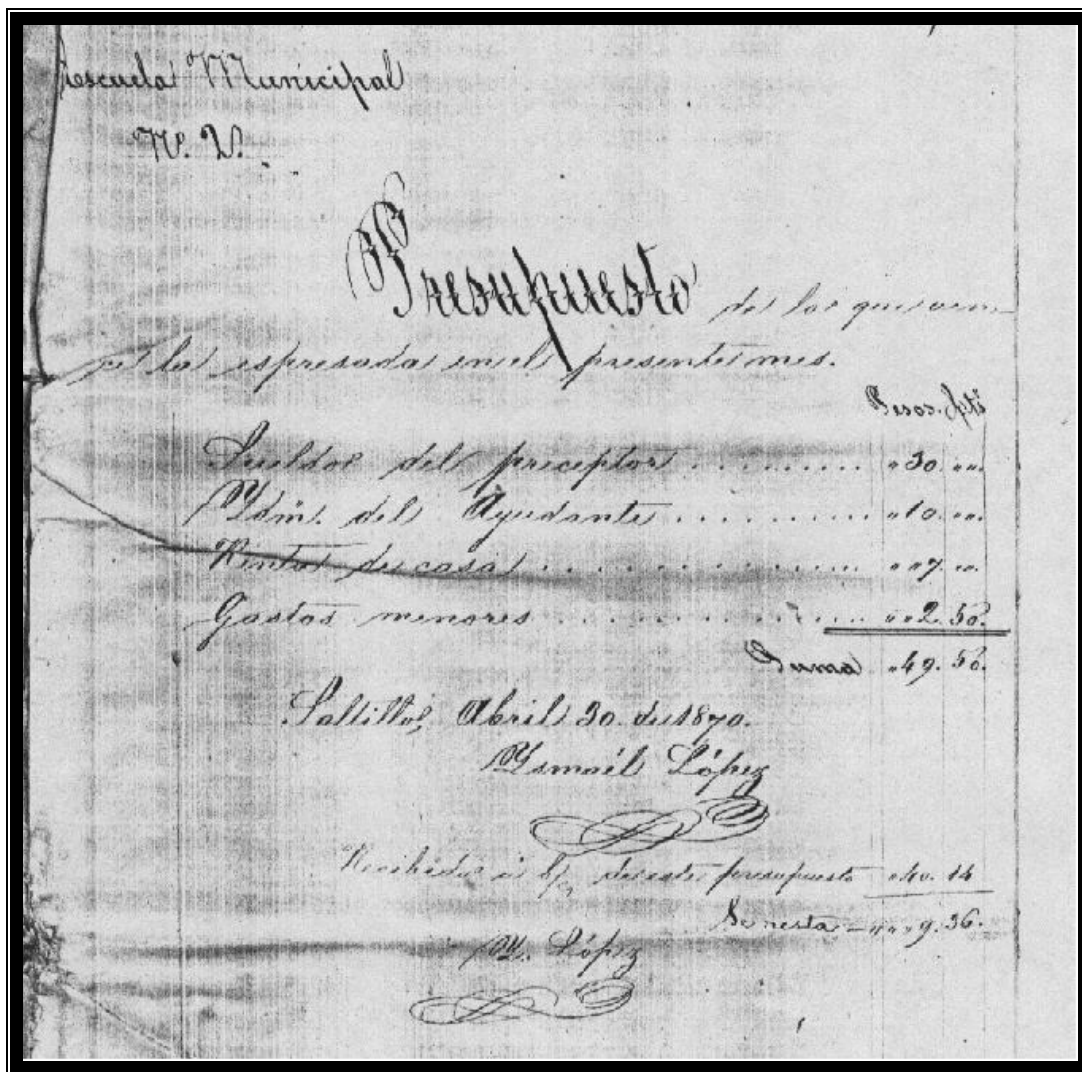 Escuela Municipal
N.º 2.º
Presupuesto de los que ven-
ce la espresada en el presente mes.
Pesos.
Sueldo del preceptor .......... " 30. " ".
Ydm. del Ayudante .......... " 10. " ".
Renta de casa .......... " " 7. " ".
Gastos menores .......... " " 2. 50.
Suma " 49. 50.
Saltillo, Abril 30. de 1870.
Ysmaél López
Recibido á de este presupuesto " 40. 14
Se resta = " " " 9. 36.
Y. López